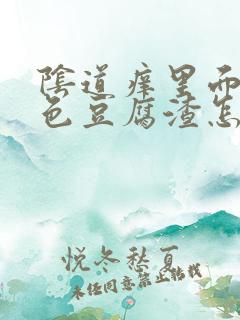 陰道痒里面
色豆腐渣怎
悦冬愁夏
未经同意禁止转载